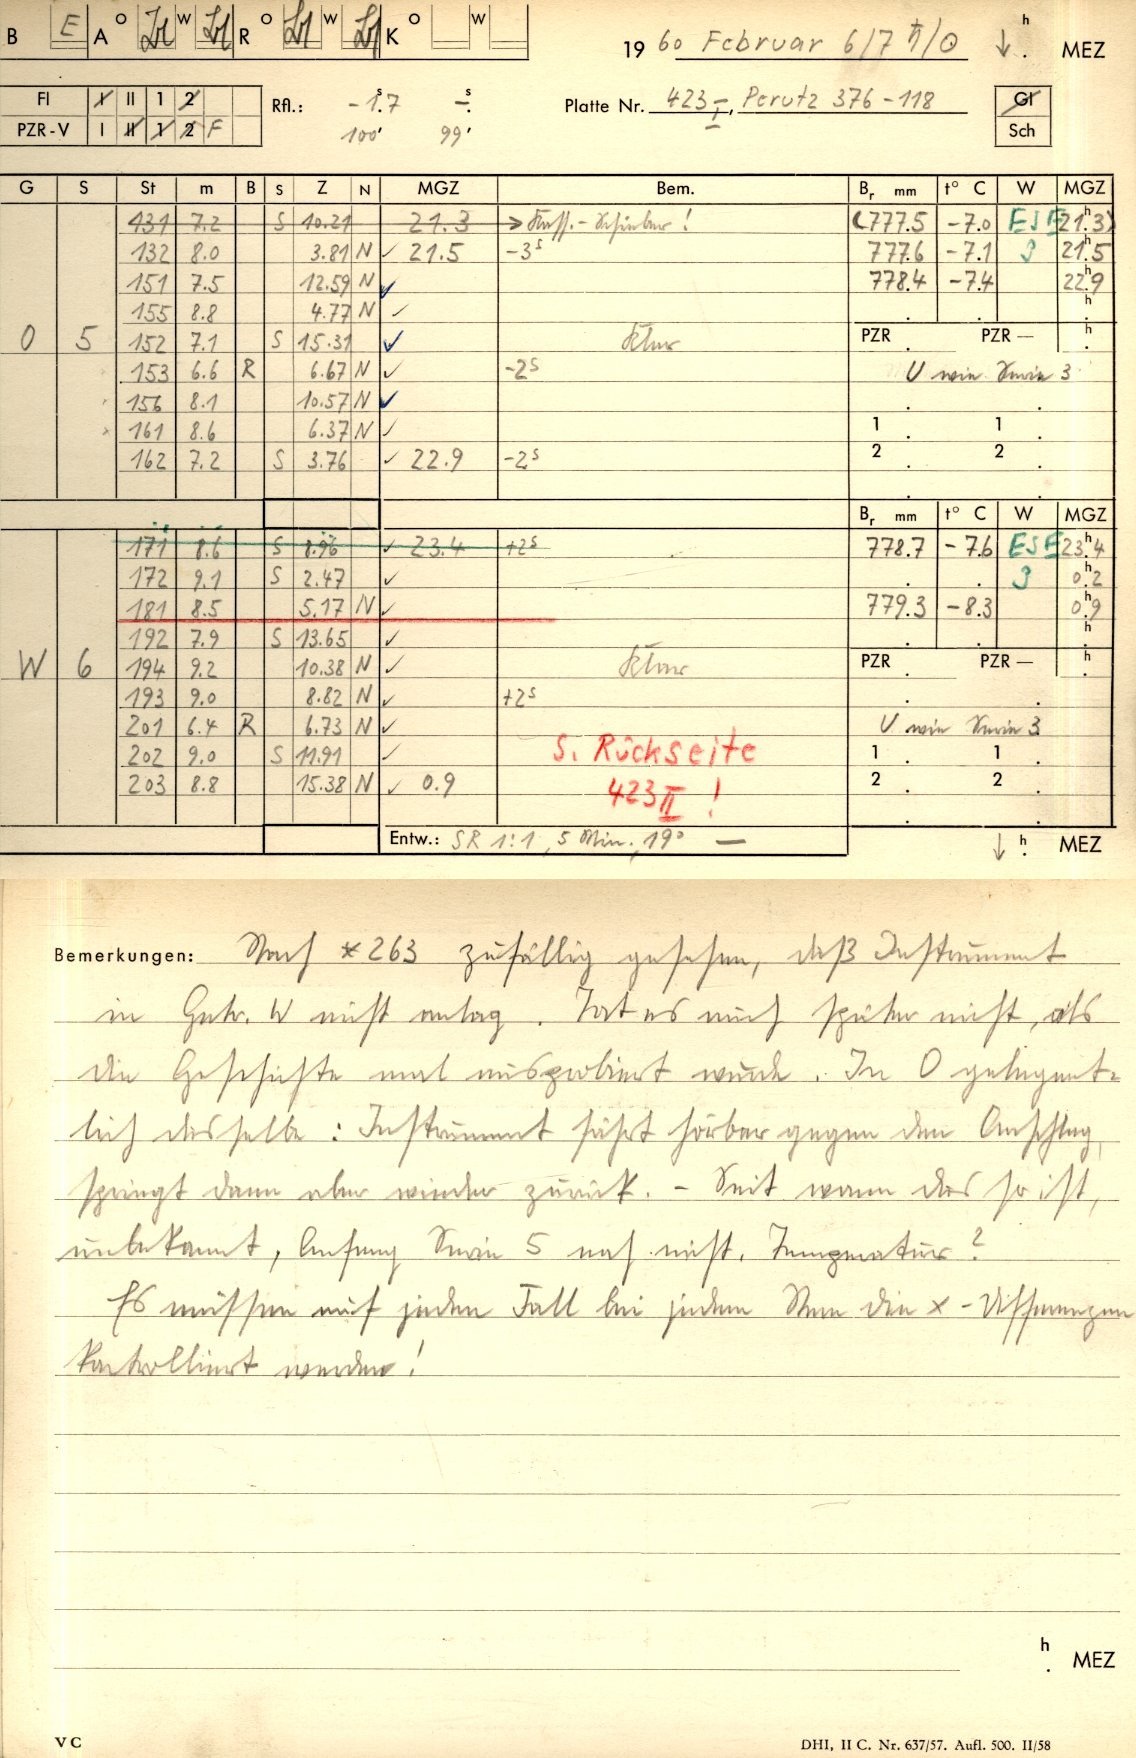 B E A O W R O W K O W
19 60 Februar 6/7 ♄/☉ ↓ h . MEZ
FI I II 1 2
PZR-V I II 1 2 F
Rfl.: -1.s7 -s.
100' 99'
Platte Nr. 423 I, Perutz 376-118
GI
Sch
G S St m B S Z N MGZ Bem. Br mm t° C W MGZ
131 7.2 S 10.21 21.3 > Kass.-Schieber! (777.5 -7.0 ESE 21.h3)
132 8.0 3.81 N ✓ 21.5 -3s 777.6 -7.1 3 21.h5
151 7.5 12.59 N ✓ 778.4 -7.4 22.h9
155 8.8 4.77 N ✓ h
O 5 152 7.1 S 15.31 ✓ Klar PZR . PZR — h
153 6.6 R 6.67 N ✓ -2s U wie Serie 3
156 8.1 10.57 N ✓
161 8.6 6.37 N ✓ 1 . 1 .
162 7.2 S 3.76 ✓ 22.9 -2s 2 . 2 .
Br mm t° C W MGZ
171 8.6 S 8.96 ✓ 23.4 +2s 778.7 -7.6 ESE 23.h4
172 9.1 S 2.47 ✓ 3 0.h2
181 8.5 5.17 N ✓ 779.3 -8.3 0.h9
192 7.9 S 13.65 ✓ h
W 6 194 9.2 10.38 N ✓ Klar PZR . PZR — h
193 9.0 8.82 N ✓ +2s
201 6.4 R 6.73 N ✓ U wie Serie 3
202 9.0 S 11.91 ✓ S. Rückseite 1 . 1 .
203 8.8 15.38 N ✓ 0.9 423 II ! 2 . 2 .
Entw.: SR 1:1, 5 Min., 19° — ↓ h . MEZ
Bemerkungen: Nach * 263 zufällig gesehen, daß Instrument
in Getr. W nicht anlag. Tat es auch später nicht, als
die Geschichte mal ausprobiert wurde. In O gelegent-
lich dasselbe: Instrument fährt hörbar gegen den Anschlag,
springt dann aber wieder zurück. - Seit wann das so ist,
unbekannt, Anfang Serie 5 noch nicht. Temperatur?
Es müssen auf jeden Fall bei jedem Stern die x-Differenzen
kontrolliert werden!
h . MEZ
VC
DHI, II C. Nr. 637/57. Aufl. 500. II/58